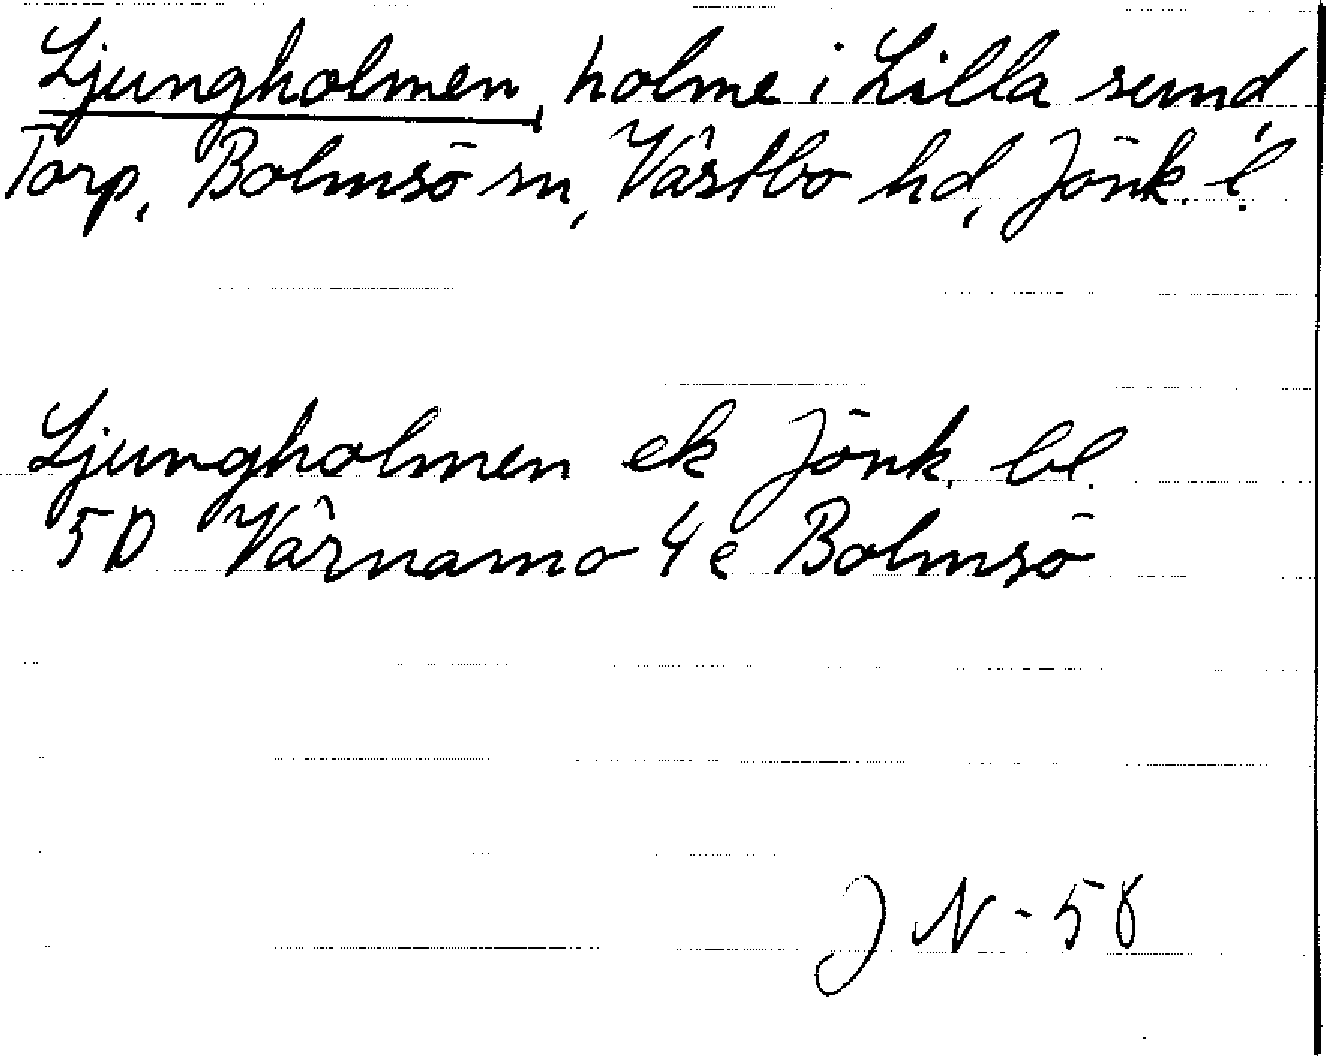 Ljungholmen, holme i Lilla sund,
Torp, Bolmsö sn, Västbo hd, Jönk. l.
Ljungholmen ek Jönk. bl.
5D Värnamo 4e Bolmsö
J N - 58